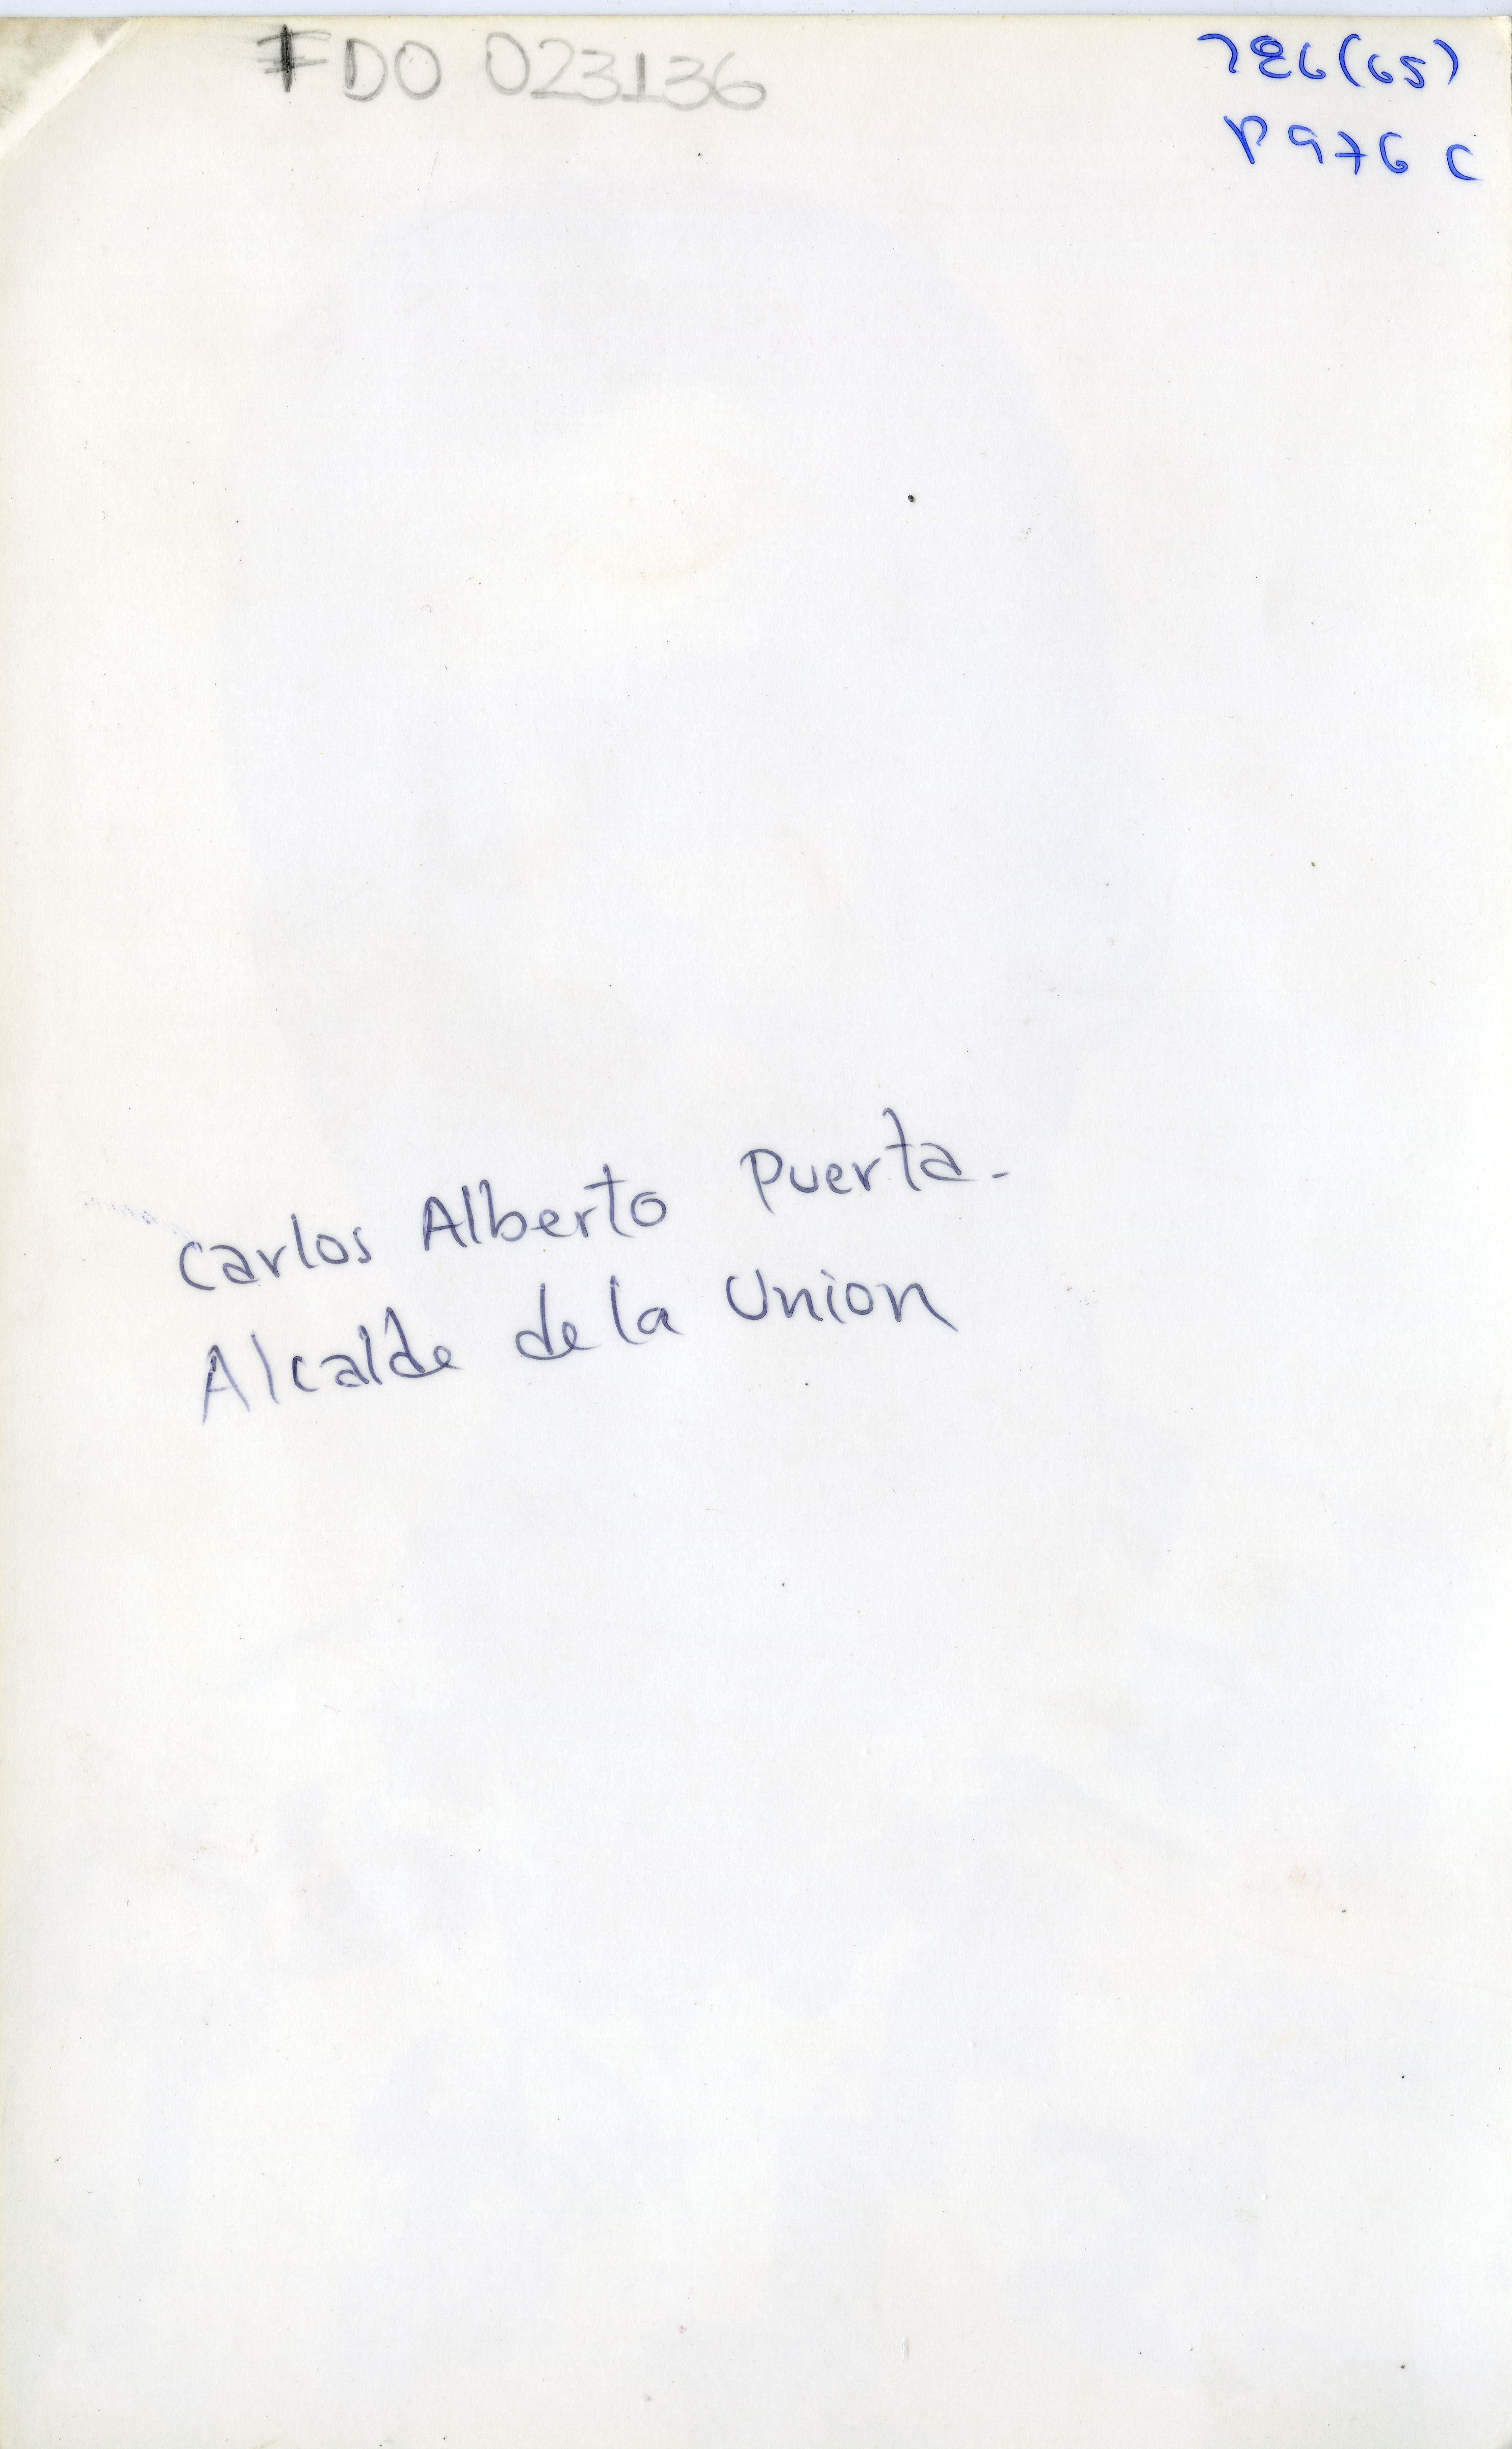 FDO 023136
786(65)
P976 C
Carlos Alberto Puerta-
Alcalde de la Union